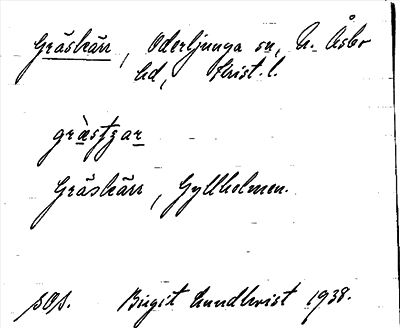 Gräskärr, Oderljunga sn, N. Åsbo
hd, Krist. l.
Gräskärr, Gyllholmen.
sOs. Birgit Lundkvist 1938.